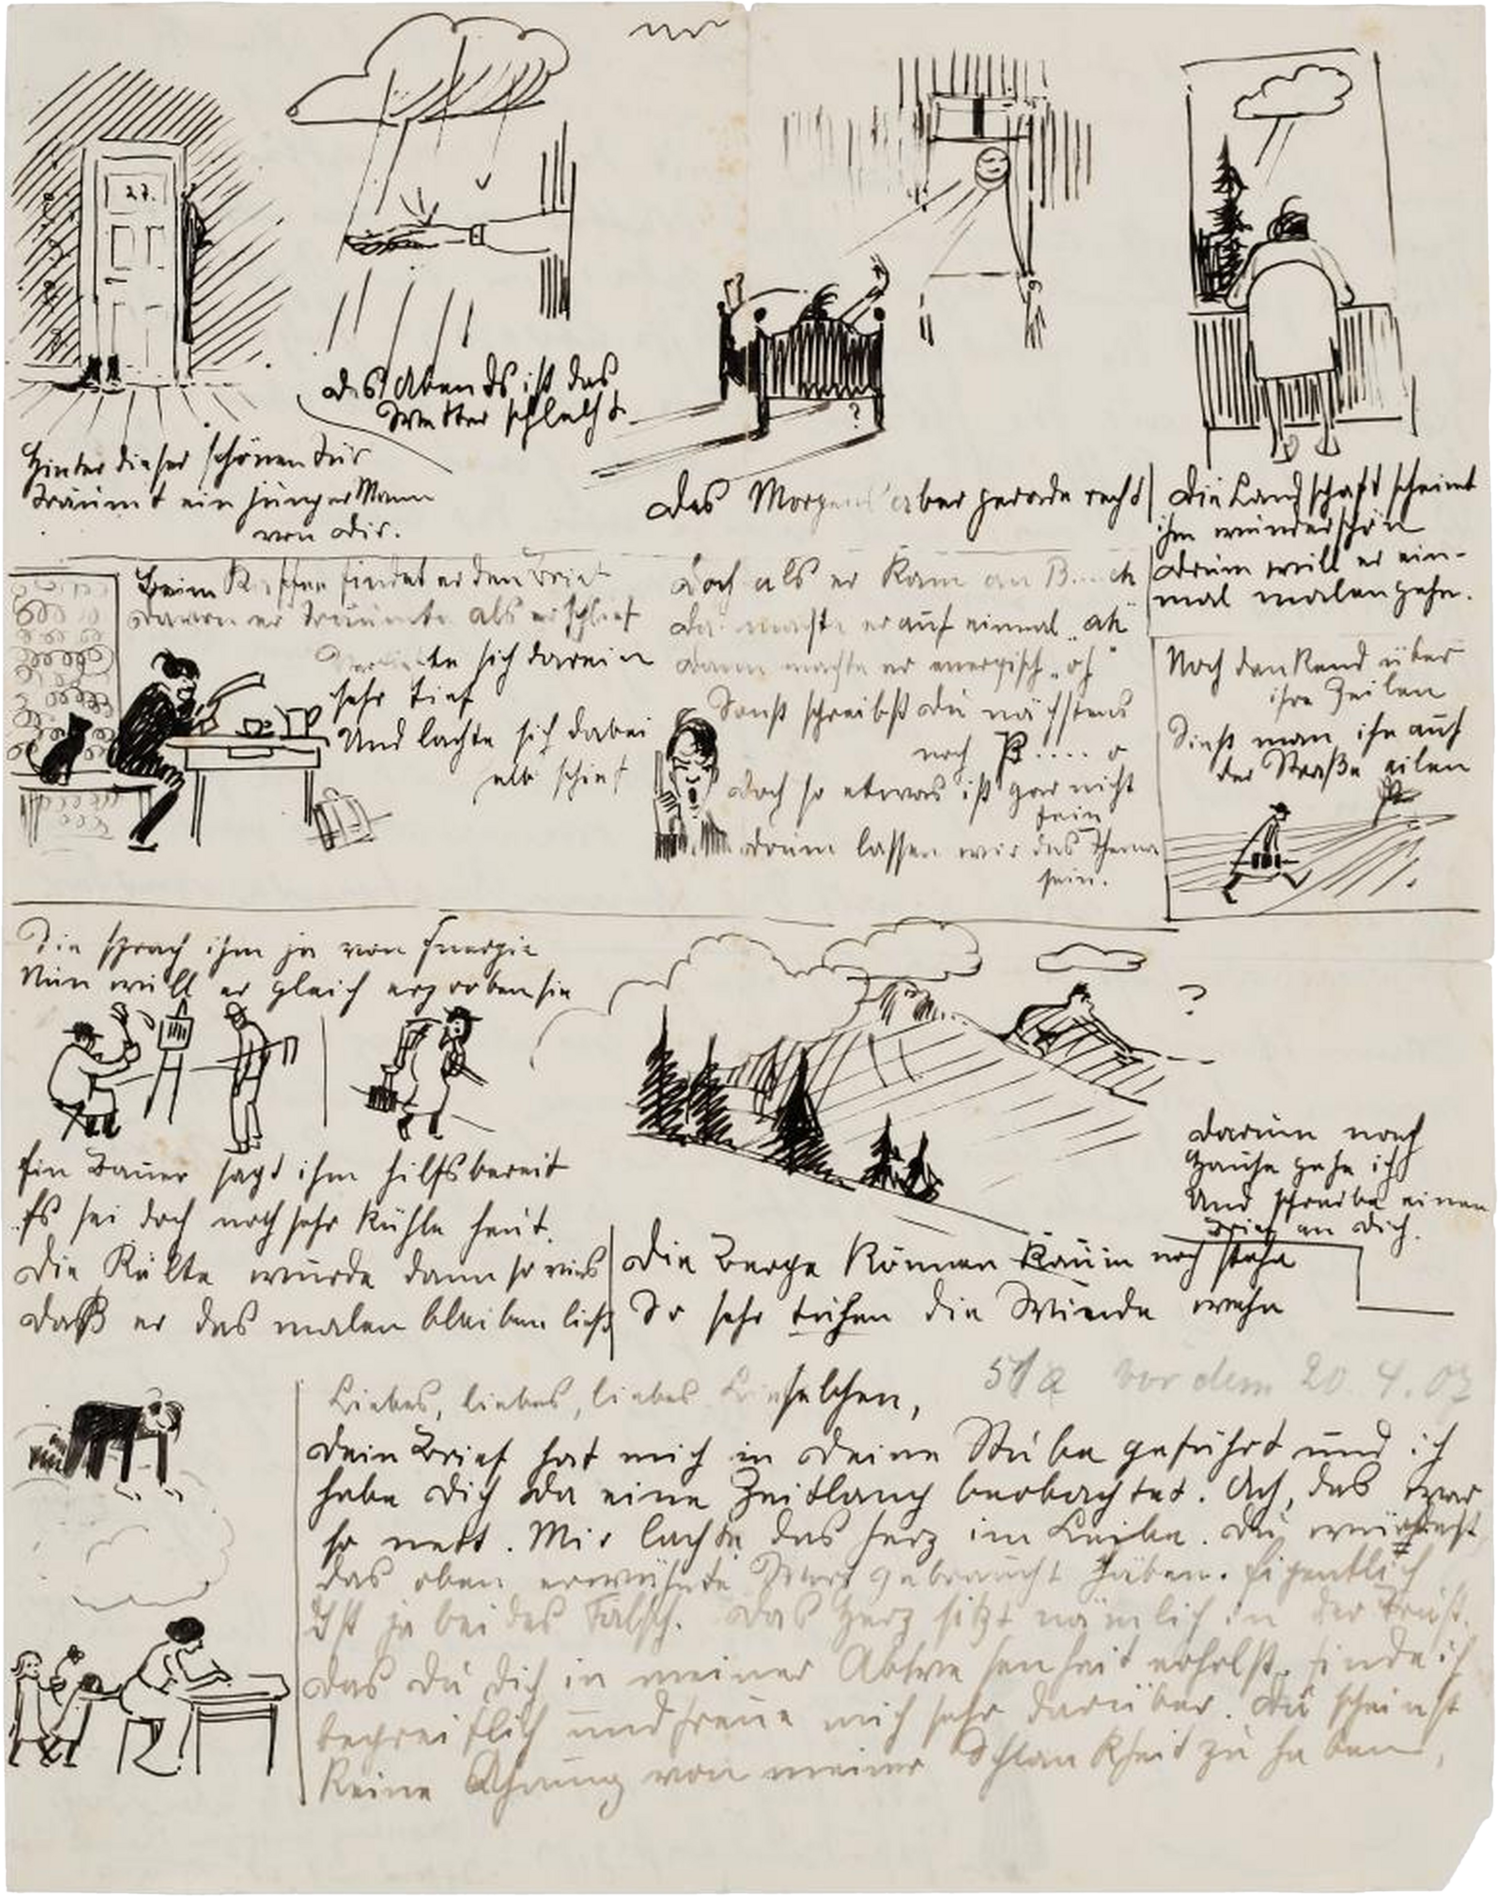 27.
Des Abends ist das
Wetter schlecht.
Hinter dieser schönen Tür
träumt ein junger Mann
von Dir.
?
Des Morgens aber gerade recht
Die Landschaft scheint
ihm wunderschön
Drum will er ein-
mal malen gehn.
Beim Kaffee findet er den Brief
Davon er träumte als er schlief
sich darein
sehr tief
Und lachte sich dabei
halb schief
Doch als er kam an B...ch
Da machte er auf einmal „ah"
Dann machte er energisch „oh"
Sonst schreibst Du nächstens
noch P.... o
Doch so etwas ist gar nicht
fein
Drum lassen wir das Thema
sein.
Noch denkend über
ihre Zeilen
Sieht man ihn auf
der Straße eilen
Die sprach ihm ja von Energie
Nun will er gleich erproben sie
?
Ein Bauer sagt ihm hilfsbereit
Es sei doch noch sehr kühle heut.
Die Kälte wurde dann so
Daß er das malen bleiben ließ
Darum nach
Hause gehe ich
Und schreibe einen
Brief an Dich.
Die Berge können kaum noch stehn
So sehr tuhen die Winde wehn
Liebes, liebes, liebes
51a vor dem 20 4.03
Dein Brief hat mich in Deine Stube geführt und ich
habe Dich da eine Zeitlang beobachtet. Ach, das war
so nett. Mir lachte das Herz im Leibe. Du würdest
das oben erwähnte Wort gebraucht haben. Eigentlich
Ist ja beides Falsch. Das Herz sitzt nämlich in der Brust.
Das Du Dich in meiner Abwesenheit erholst, finde ich
begreiflich und freue mich sehr darüber. Du scheinst
Keine Ahnung von meiner Schlankheit zu haben,